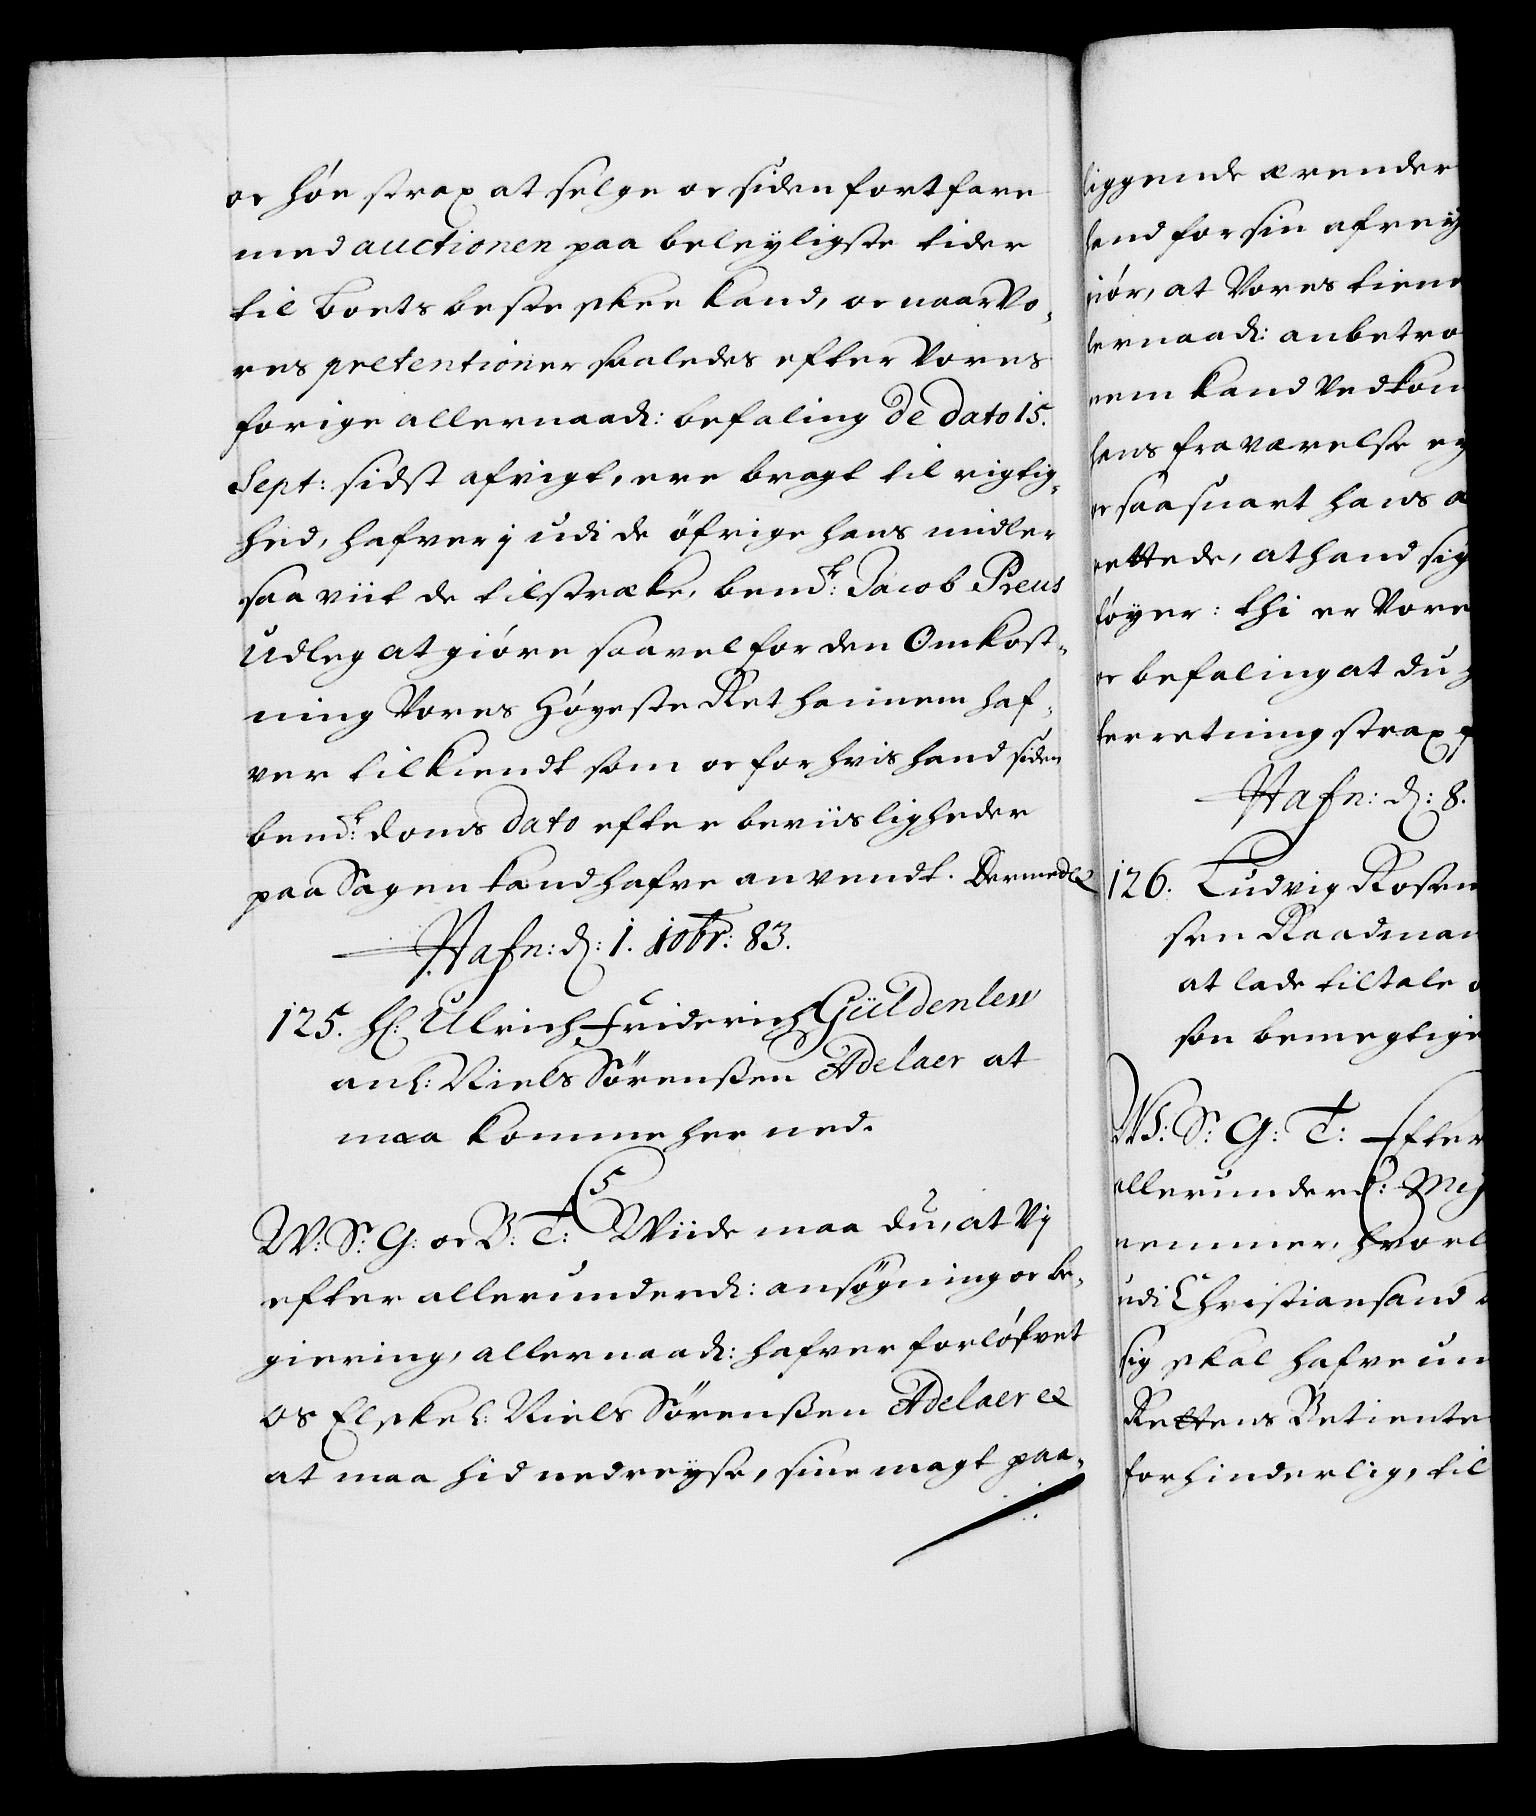 oc höe strax at selge oc siden fortfare
med auctionen paa beleyligste tider
til Boets beste skee kand, oc naar Vo,
res pretentioner saaledes efter Vores
forige allernaad: befaling de dato 15.
Sept: sidst afvigt, ere bragt til rigtig,
hed, hafver j udi de öfrige hans midler
saa viit de tilstræke, bemd: Jacob Preus
Udleg at giöre saavel for den Omkost,
ning Vores Höyeste Ret hannem haf,
ver tilkiendt som oc for hvis hand siden
bemd: doms dato efter beviisligheder
paa Sagen kand hafve anvendt. Dermed &
Hafn: d: 1. 10br: 83.
125. H: Ulrich Friderich Güldenlew
anl: Niels Sörenßen Adelaer at
maa komme her ned.
C5
W: S: G: oc B: T: Wiide maa du, at Vy
efter allerunderd: ansögning oc be,
giering, allernaad: hafver forlöfvet
os Elskel: Niels Sörenßen Adelaer &
at maa hid nedreyse, sine magt paa,
liggende ærender
hend for sin afrey
giör, at Vores tiene
lernaad: anbetro
nem kand Vedkom
hans fraværelse ey
oc saa snart hans a
rettede, at hand sig
föyer: thi er Vore
oc befaling at du h
terretning strax f
Hafn: d: 8.
126. Ludvig Rosen
sen Raadman
at lade tiltale o
son bemegtige
W: S: G: T: Efter
allerunderd: Mey
nemmer, hvorl
udi Christiansand
sig skal hafve un
Rettens Betiente
forhinderlig, til